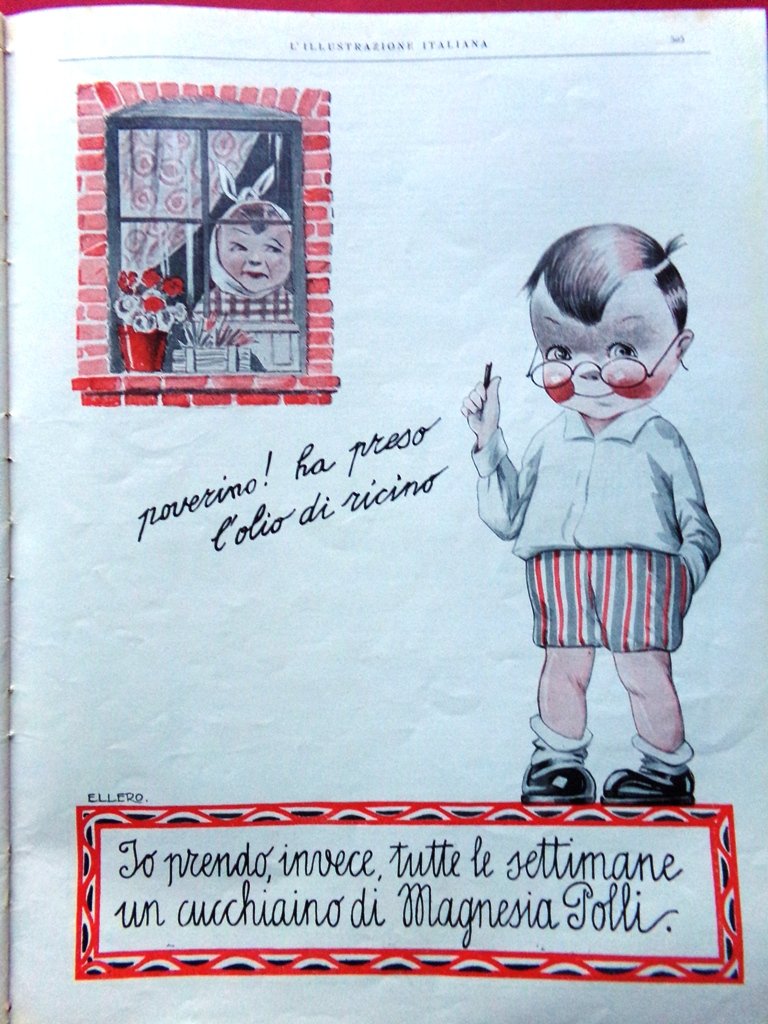 L'ILLUSTRAZIONE ITALIANA
poverino! ha preso
l'olio di ricino
ELLERO.
Io prendo, invece, tutte le settimane
un cucchiaino di Magnesia Polli.